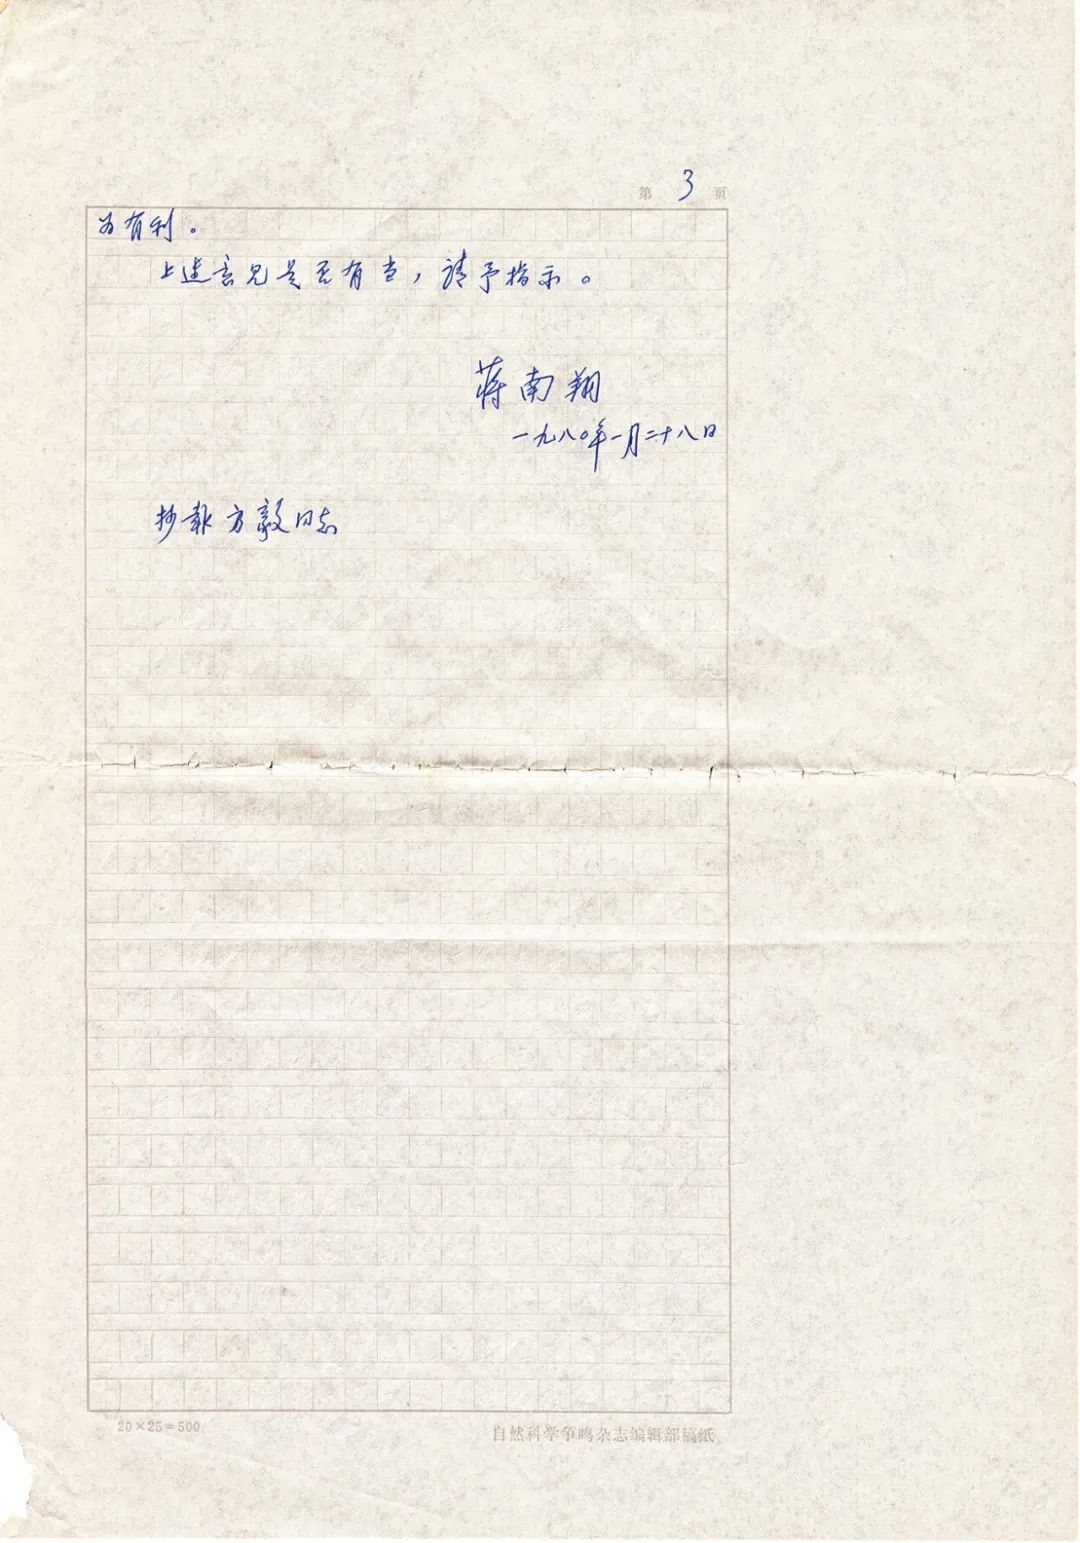 第 3 页
为有利。
上述意见是否有当，请予指示。
蒋南翔
一九八〇年一月二十八日
抄报方毅同志
20×25=500
自然科学争鸣杂志编辑部稿纸